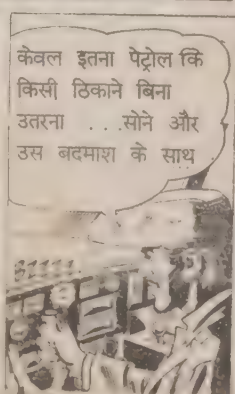 केवल इतना पेट्रोल कि
किसी ठिकाने बिना
उतरना ...सोने और
उस बदमाश के साथ